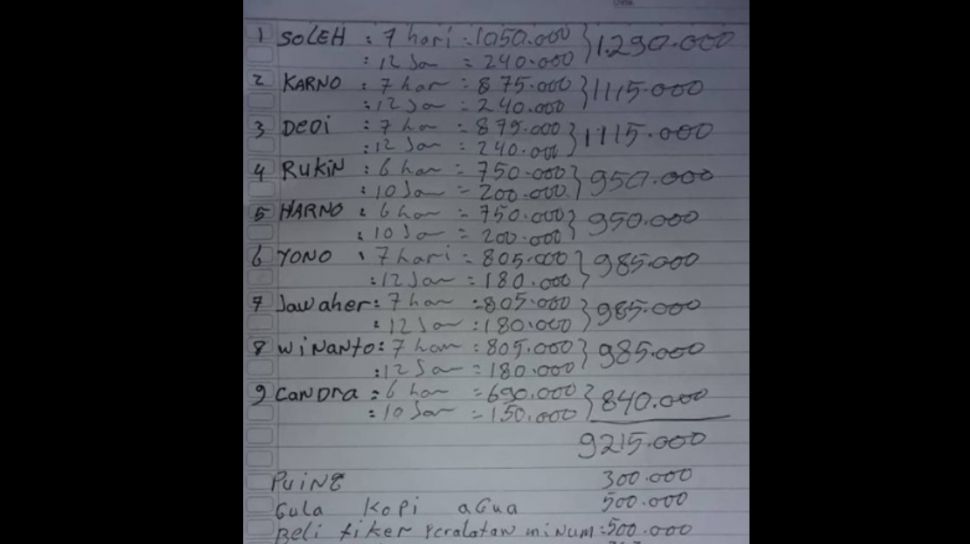 1 SOLEH : 7 hari = 1050.000 } 1.290.000
: 12 Jam = 240.000
2 KARNO : 7 hari = 875.000 } 1115.000
: 12 Jam = 240.000
3 DEDI : 7 hari = 875.000 } 1115.000
: 12 Jam = 240.000
4 RUKIN : 6 hari = 750.000 } 950.000
: 10 Jam = 200.000
5 HARNO : 6 hari = 750.000 } 950.000
: 10 Jam = 200.000
6 YONO : 7 hari = 805.000 } 985.000
: 12 Jam = 180.000
7 Jawaher : 7 hari = 805.000 } 985.000
: 12 Jam = 180.000
8 WiNaNto : 7 hari = 805.000 } 985.000
: 12 Jam = 180.000
9 CaNDra : 6 hari = 690.000 } 840.000
: 10 Jam = 150.000
9215.000
PuiNg 300.000
Gula kopi aqua 500.000
Beli tiker Peralatan minum : 500.000